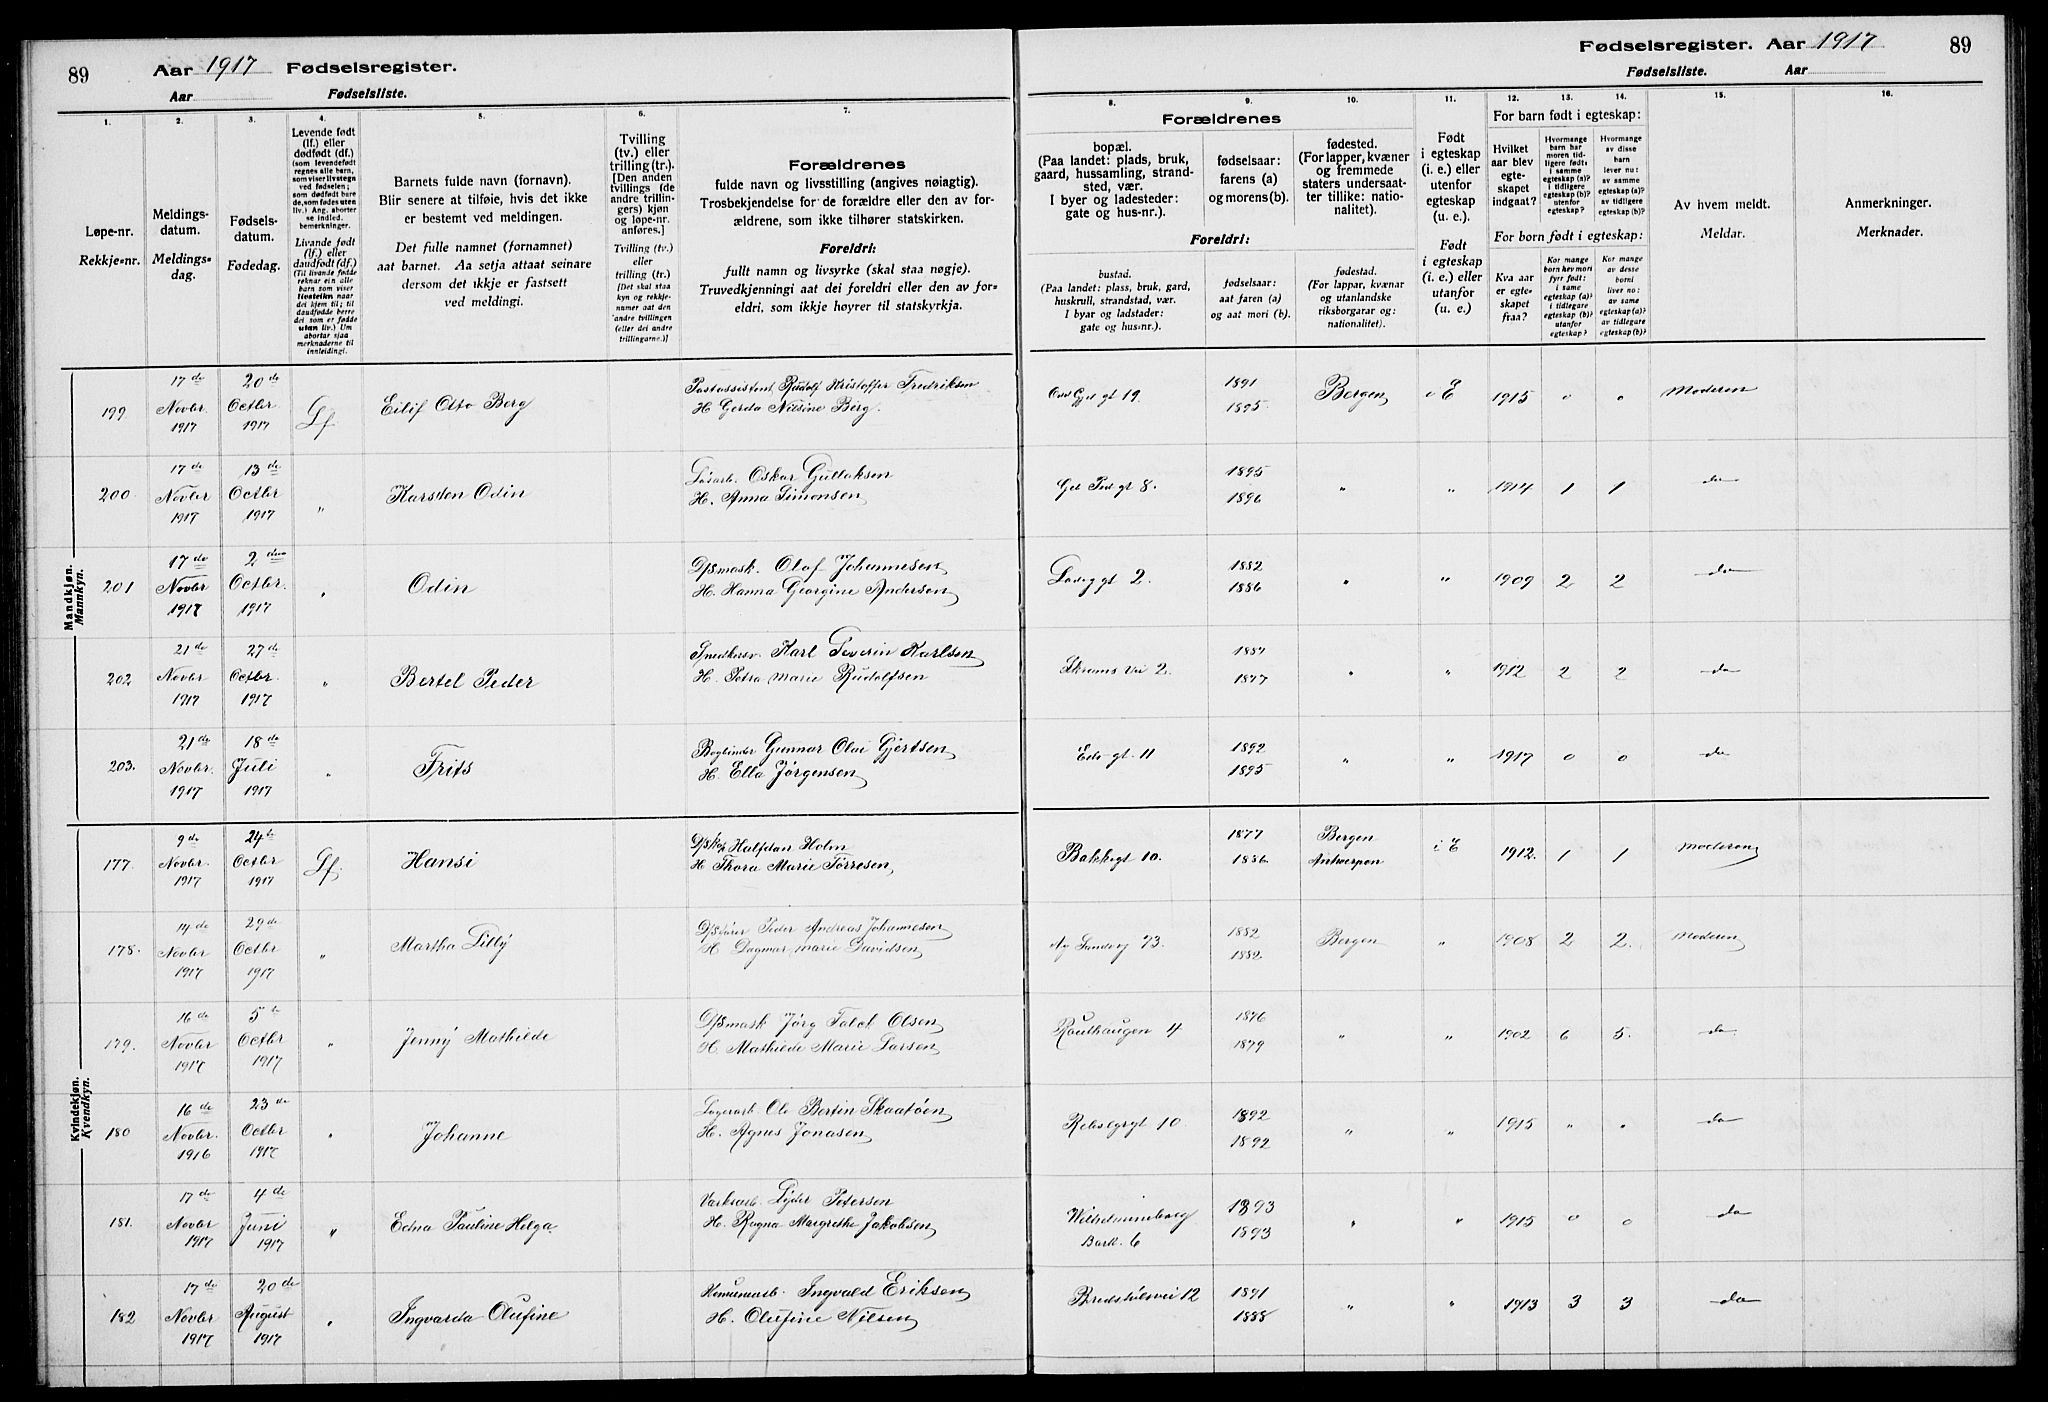 89
Aar 1917 Fødselsregister.
Aar Fødselsliste.
1. 2. 3. 4. 5. 6. 7.
Løpe-nr.
Rekkje-nr.
Meldings-
datum.
Meldings-
dag.
Fødsels-
datum.
Fødedag.
Levende født
(lf.) eller
dødfødt (df.)
(som levendefødt
regnes alle barn,
som viser livstegn
ved fødselen;
som dødfødt bare
de, som fødes uten
liv.) Ang. aborter
se indled.
bemerkninger.
Livande født
(lf.) eller
daudfødt (df.)
(Til livande fødde
reknar ein alle
barn som viser
livsteikn naar
dei kjem til; til
daudfødde berre
dei som er fødde
utan liv.) Um
abortar sjaa
merknaderne til
innleidingi.
Barnets fulde navn (fornavn).
Blir senere at tilføie, hvis det ikke
er bestemt ved meldingen.
Det fulle namnet (fornamnet)
aat barnet. Aa setja attaat seinare
dersom det ikkje er fastsett
ved meldingi.
Tvilling
(tv.) eller
trilling (tr.).
[Den anden
tvillings (de
andre trillin-
gers) kjøn
og løpe-nr.
anføres.]
Tvilling (tv.)
eller
trilling (tr.)
[Det skal staa
kyn og rekkje-
nummer aat den
andre tvillingen
(eller dei andre
trillingarne.)]
Forældrenes
fulde navn og livsstilling (angives nøiagtig).
Trosbekjendelse for de forældre eller den av for-
ældrene, som ikke tilhører statskirken.
Foreldri:
fullt namn og livsyrke (skal staa nøgje).
Truvedkjenningi aat dei foreldri eller den av for-
eldri, som ikkje høyrer til statskyrkja.
Mandkjøn.
Mannkyn.
199 17de Novbr. 1917 20de Octbr. 1917 Lf Eilif Otto Berg Postassistent Rudolf Kristoffer Fredriksen
H Gerda Nilsine Berg.
200 17de Novbr 1917 13de Octbr 1917 " Karsden Odin Løsarb. Oskar Gullaksen
H. Anna Simonsen
201 17de Novbr 1917 2den Octbr. 1917 " Odin D/Smask. Olaf Johannesen
H. Hanna Georgine Andersen
202 21de Novbr. 1917 27de Octbr. 1917 " Bertel Peder Snedkersv. Karl Severin Karlsen
H. Petra Marie Rudolfsen
203. 21de Novbr. 1917 18de Juli 1917 " Frits Bogbinder Gunnar Olai Gjertsen
H. Ella Jørgensen
Kvindekjøn.
Kvendkyn.
177. 9de Novbr. 1917 24de Octbr 1917 Lf. Hansi Halfdan Holm
H Thora Marie Tørresen
178. 14de Novbr 1917 29de Octbr 1917 " Martha Lilly Peder Andreas Johannesen
H Dagmar Marie Davidsen
179. 16de Novbr 1917 5te Octbr 1917 " Jenny Mathilde D/Smask Jørg Falck Olsen
H. Mathilde Marie Larsen
180 16de Novbr. 1916 23de Octbr 1917 " Johanne Lagerarb. Ole Bertin Skaatøen
H. Agnes Jonasen
181. 17de Novbr 1917 4de Juni 1917 " Edna Pauline Helga. Verksarb. Lyder Petersen
H. Ragna Margrethe Jakobsen
182 17de Novbr 1917 20de August 1917 " Ingvarda Olufine Ingvald Eriksen
H. Olufine Nilsen
Fødselsregister. Aar 1917 89
Fødselsliste. Aar
8. 9. 10. 11. 12. 13. 14. 15. 16.
Forældrenes
bopæl.
(Paa landet: plads, bruk,
gaard, hussamling, strand-
sted, vær.
I byer og ladesteder:
gate og hus-nr.).
fødselsaar:
farens (a)
og morens (b).
fødested.
(For lapper, kvæner
og fremmede
staters undersaat-
ter tillike: natio-
nalitet).
Foreldri:
bustad.
(Paa landet: plass, bruk, gard,
huskrull, strandstad, vær.
I byar og ladstader:
gate og hus-nr.).
fødselsaar:
aat faren (a)
og aat mori (b).
fødestad.
(For lappar, kvænar
og utanlandske
riksborgarar og:
nationalitet).
Født
i egteskap
(i. e.) eller
utenfor
egteskap
(u. e.).
Født
i egteskap
(i. e.) eller
utanfor
(u. e.).
For barn født i egteskap:
Hvilket
aar blev
egte-
skapet
indgaat?
Hvormange
barn har
moren tid-
ligere født:
i samme
egteskap (a)?
i tidligere
egteskap (b)?
utenfor
egteskap?
Hvormange
av disse
barn
lever nu:
av samme
egteskap (a)?
av tidligere
egteskap (b)?
For born født i egteskap:
Kva aar
er egte-
skapet
fraa?
Kor mange
born hev mori
fyrr født:
i same
egteskap (a)?
i tidlegare
egteskap (b)?
utanfor
egteskap?
Kor mange
av desse
borni
liver no:
av same
egteskap (a)?
av tidlegare
egteskap (b)?
Av hvem meldt.
Meldar.
Anmerkninger.
Merknader.
19. 1891 1895. Bergen i E 1915 0 0 Moderen
8. 1895 1896 " " 1914 1 1 do
2. 1882 1886 " " 1909 2 2 do
Skrams vei 2. 1877 " " 1912 2 2 do
11 1892 1895 " " 1917 0 0 do
Bakkegt 10. 1877 1886 Bergen Antwerpen i E 1912. 1 1 Moderen
Ny Sandvg 73. 1882 1882. Bergen " 1908 2 2. Moderen
Rauthaugen 4 1876 1879 " " 1902 6 5. do
10. 1892 1892 " " 1915 " " do
Wilhelmineborg
Bark. 6 1893 1893 " " 1915 0 0 do
12 1891 1888 " " 1913 3 3 do